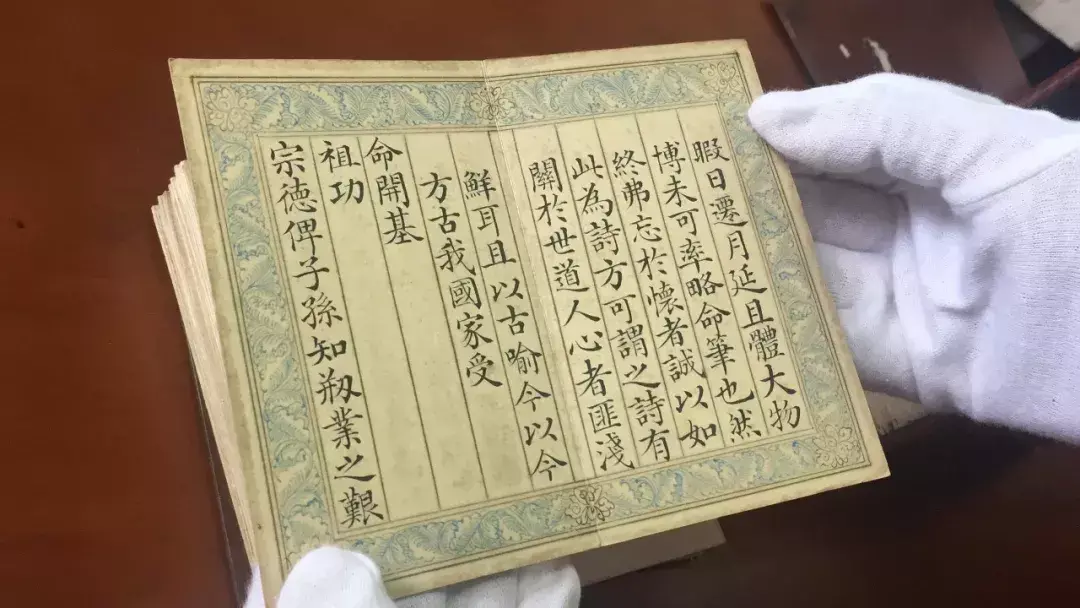 暇日遷月延且體大物
博未可率略命筆也然
終弗忘於懷者誠以如
此為詩方可謂之詩有
關於世道人心者匪淺
鮮耳且以古喻今以今
方古我國家受
命開基
祖功
宗德俾子孫知剏業之艱